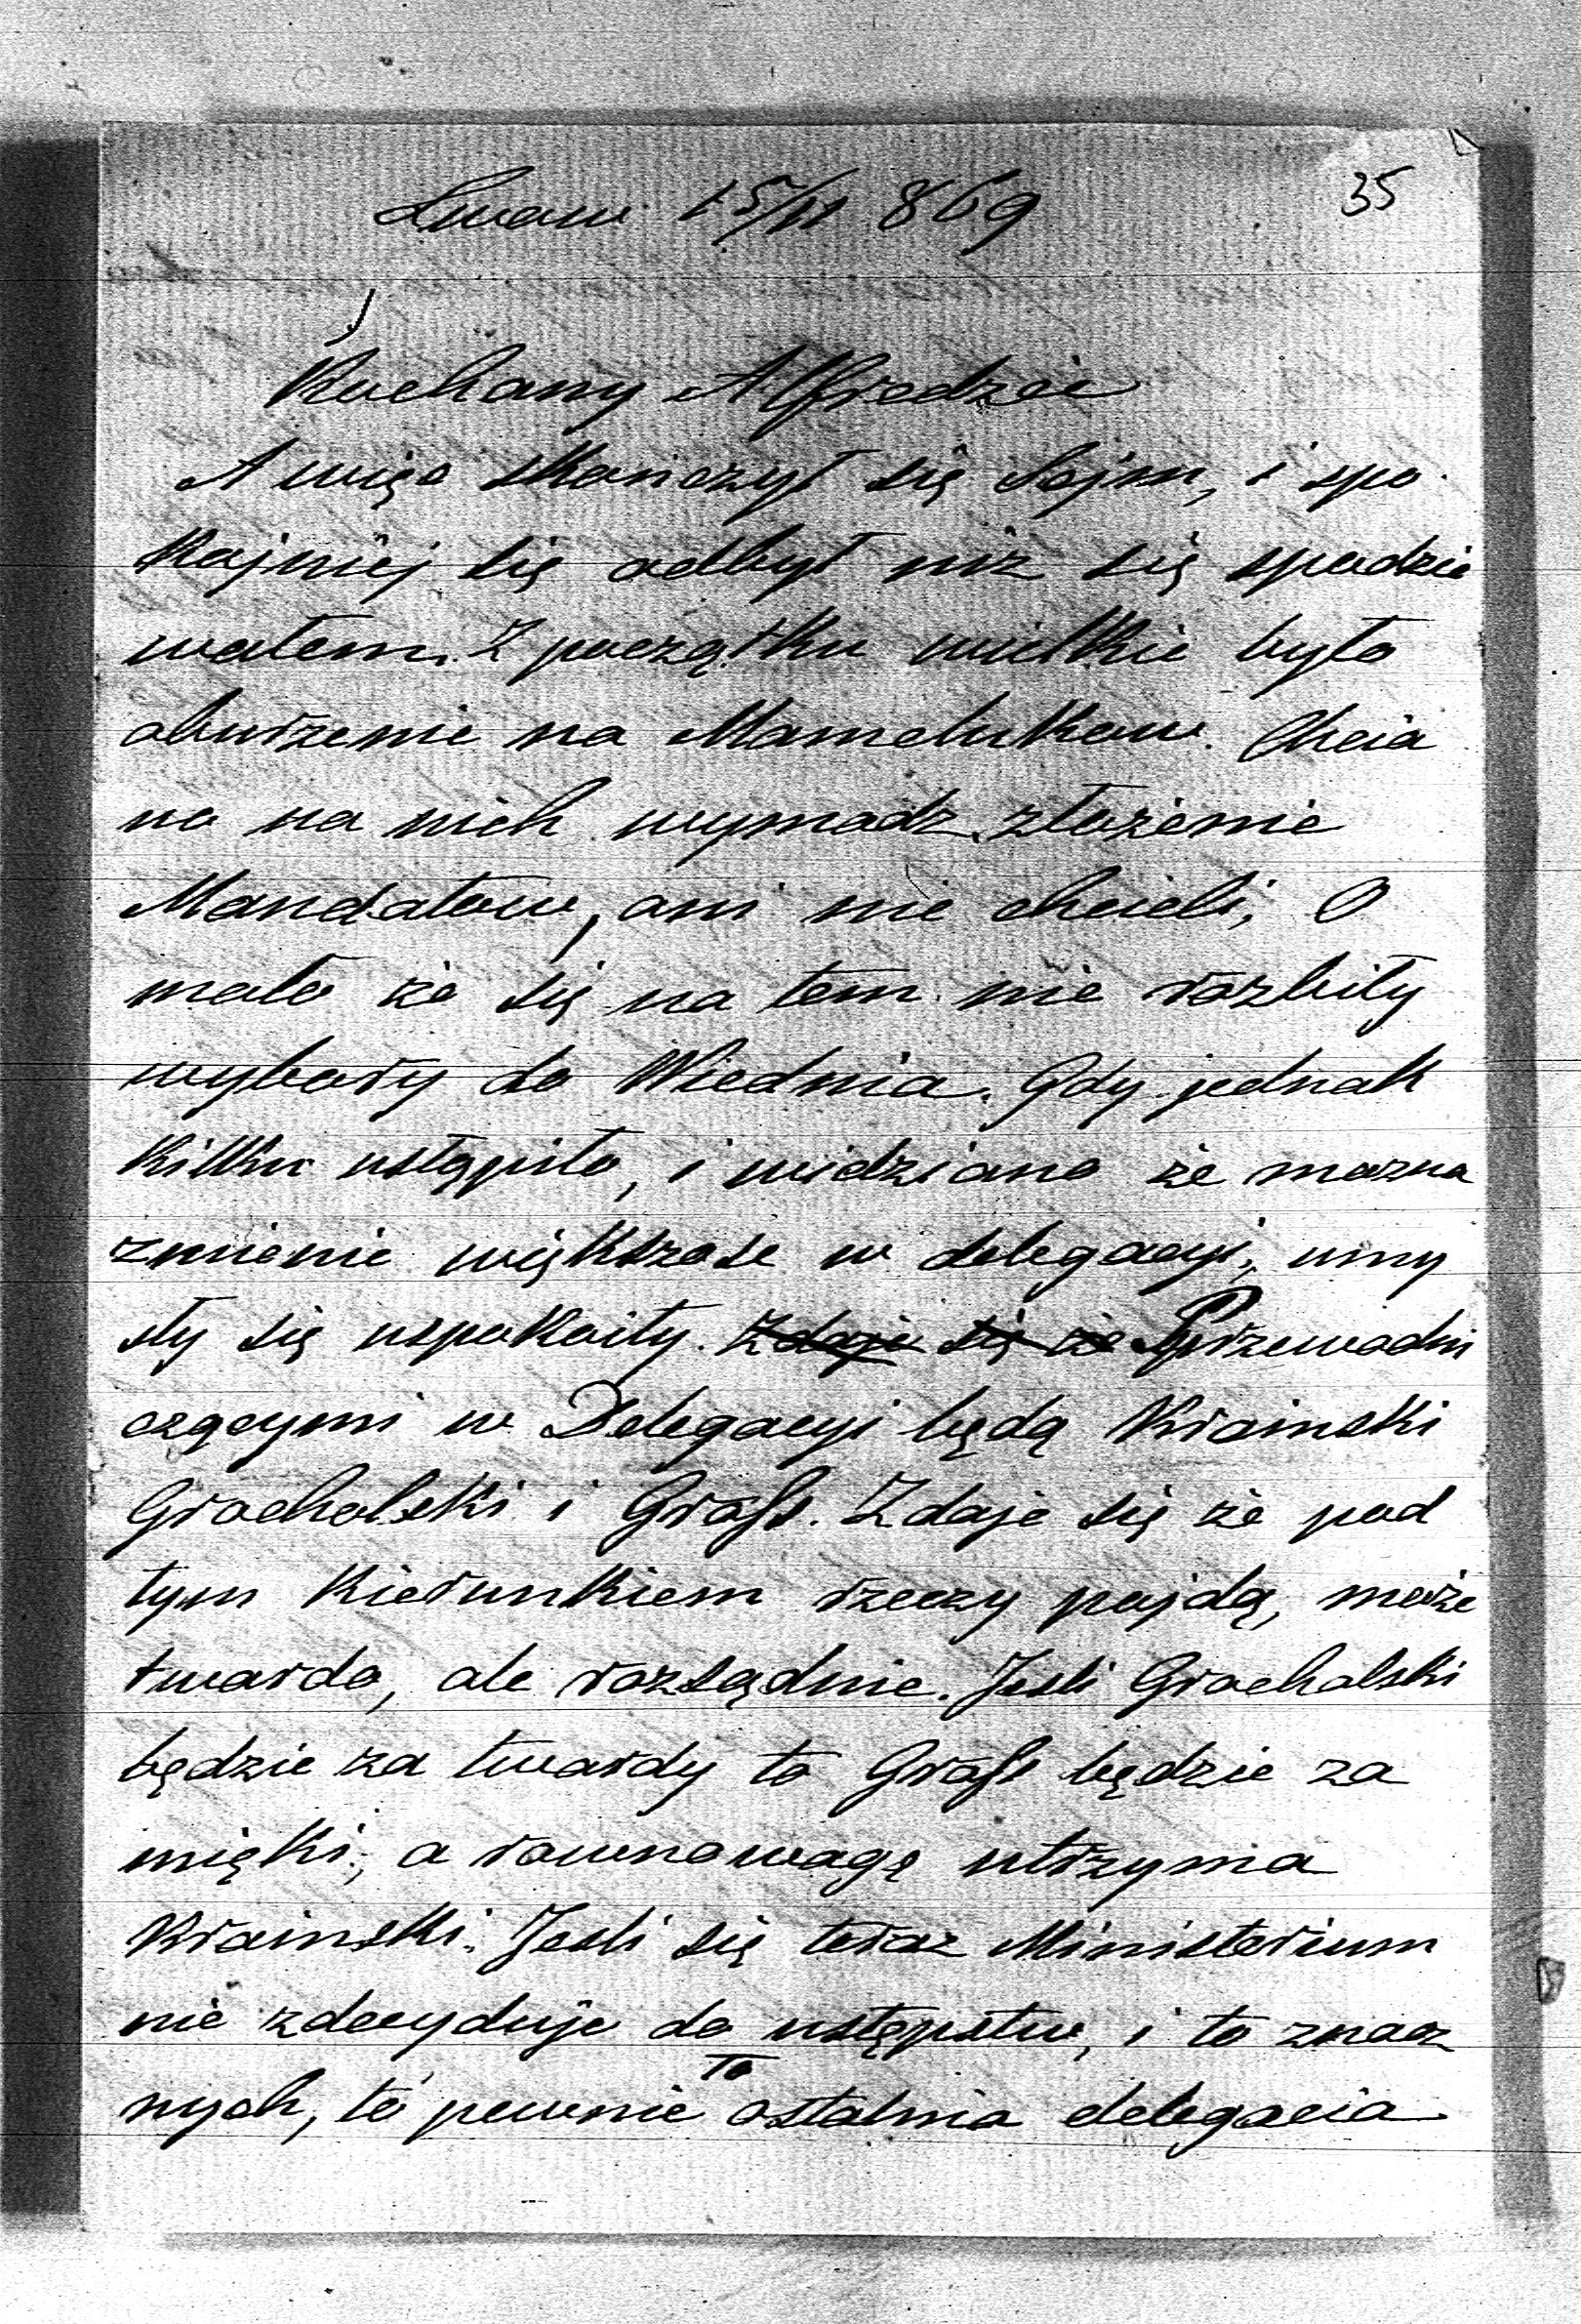 Lwow 15/11 869
35
Kochany Alfredzie
A więc skończył się Sejm, i spo
kojniej się odbył niż się spodzie
wałem. Z początku wielkie było
oburzenie na Mamelukow. Chcia
no na nich wymodz złożenie
Mandatow, oni nie chcieli, O
mało że się na tem nie rozbiły
wybory do Wiednia. Gdy jednak
kilku ustąpiło, i widziano że mozna
zmienic większosc w delegacyi, umy
sły się uspokoiły. Zdaje się że Przewodni
czącymi w Delegacyi będą Krainski
Grocholski i Gross. Zdaje się że pod
tym kierunkiem rzeczy pojdą, może
twardo, ale rozsądnie. Jesli Grocholski
będzie za twardy to Gross będzie za
miękki, a rownowagę utrzyma
Krainski. Jesli się teraz Ministerium
nie zdecyduje do ustępstw, i to znacz
nych, to pewnie to ostatnia delegacia